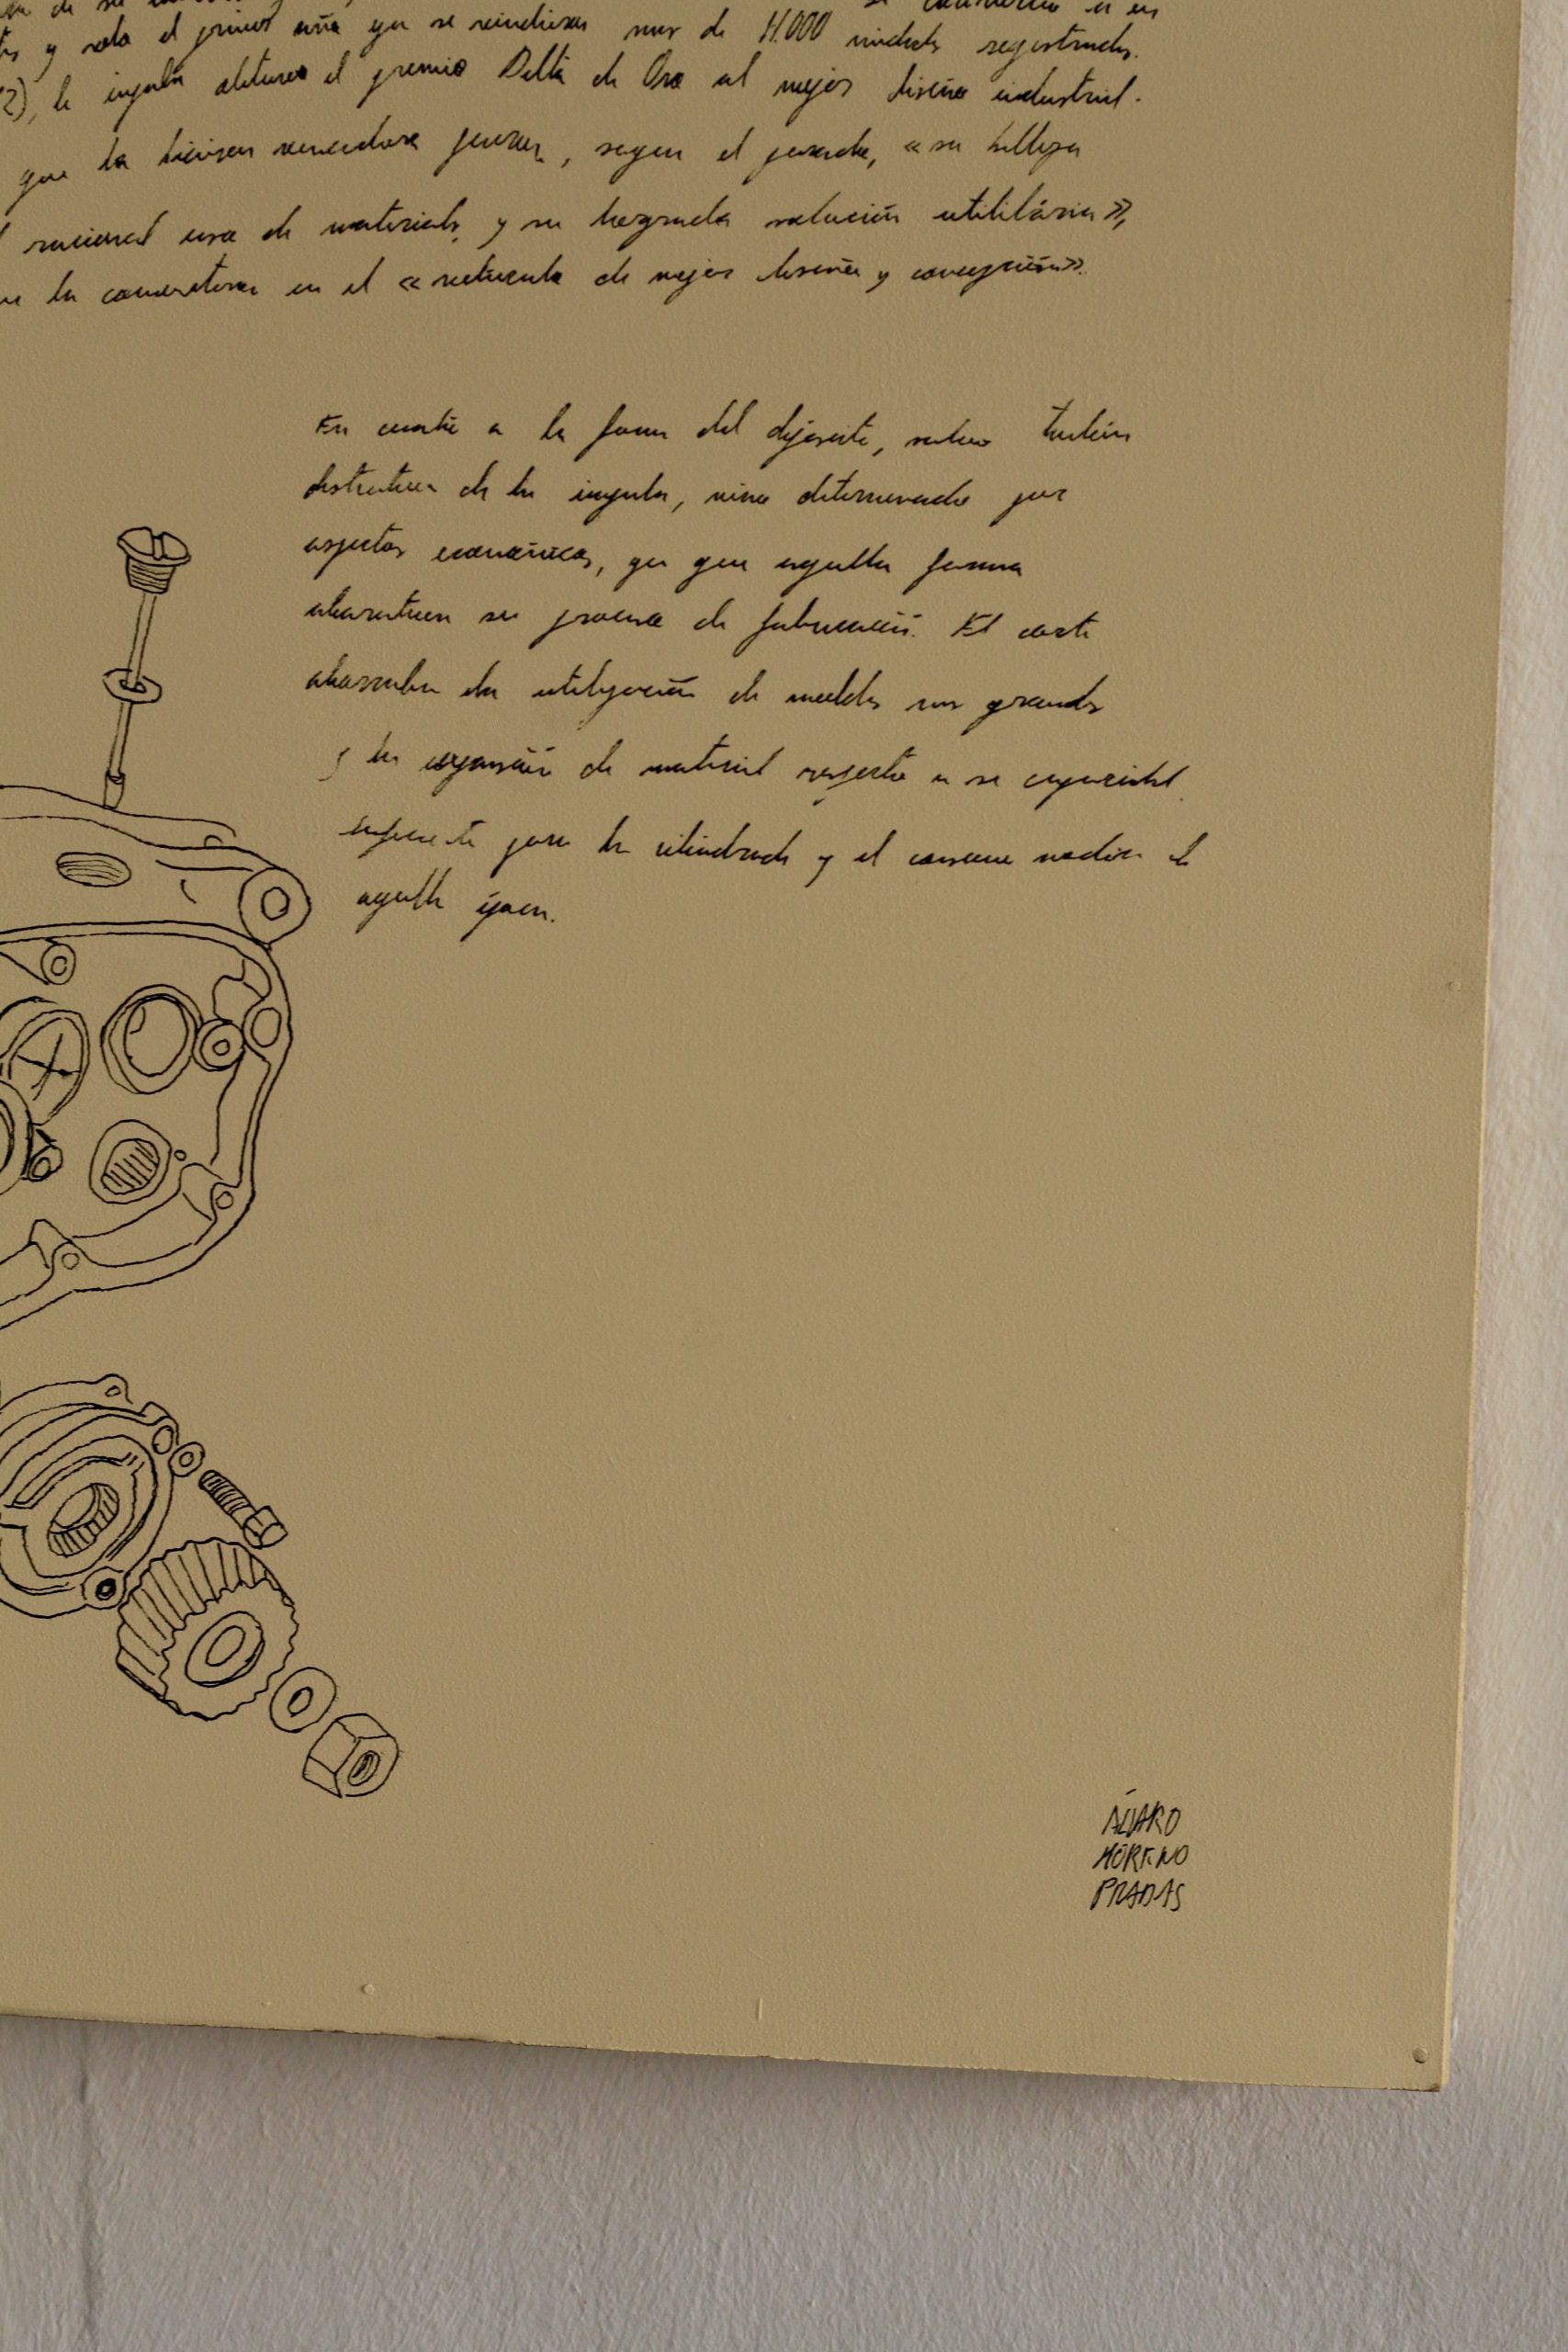 de su
y solo el primer año ya se vendieron mas de 11.000 unidades registradas.
2), la impala obtuvo el premio Delta de Oro al mejor diseño industrial.
que la hicieron vencedora fueron, segun el jurado, «su belleza
racional uso de materiales, y su lograda solución utilitária»,
la convirtieron en el «vehículo de mejor diseño y concepción».
En cuanto a la forma del deposito, rasgo también
distintivo de la impala, vino determinado por
aspectos económicos, ya que aquella forma
abarataba su proceso de fabricación. El coste
ahorraba la utilización de moldes mas grandes
y la expansión de material respecto a su capacidad,
suficiente para la cilindrada y el consumo medio de
aquella época.
ÁLVARO
MORENO
PRADAS